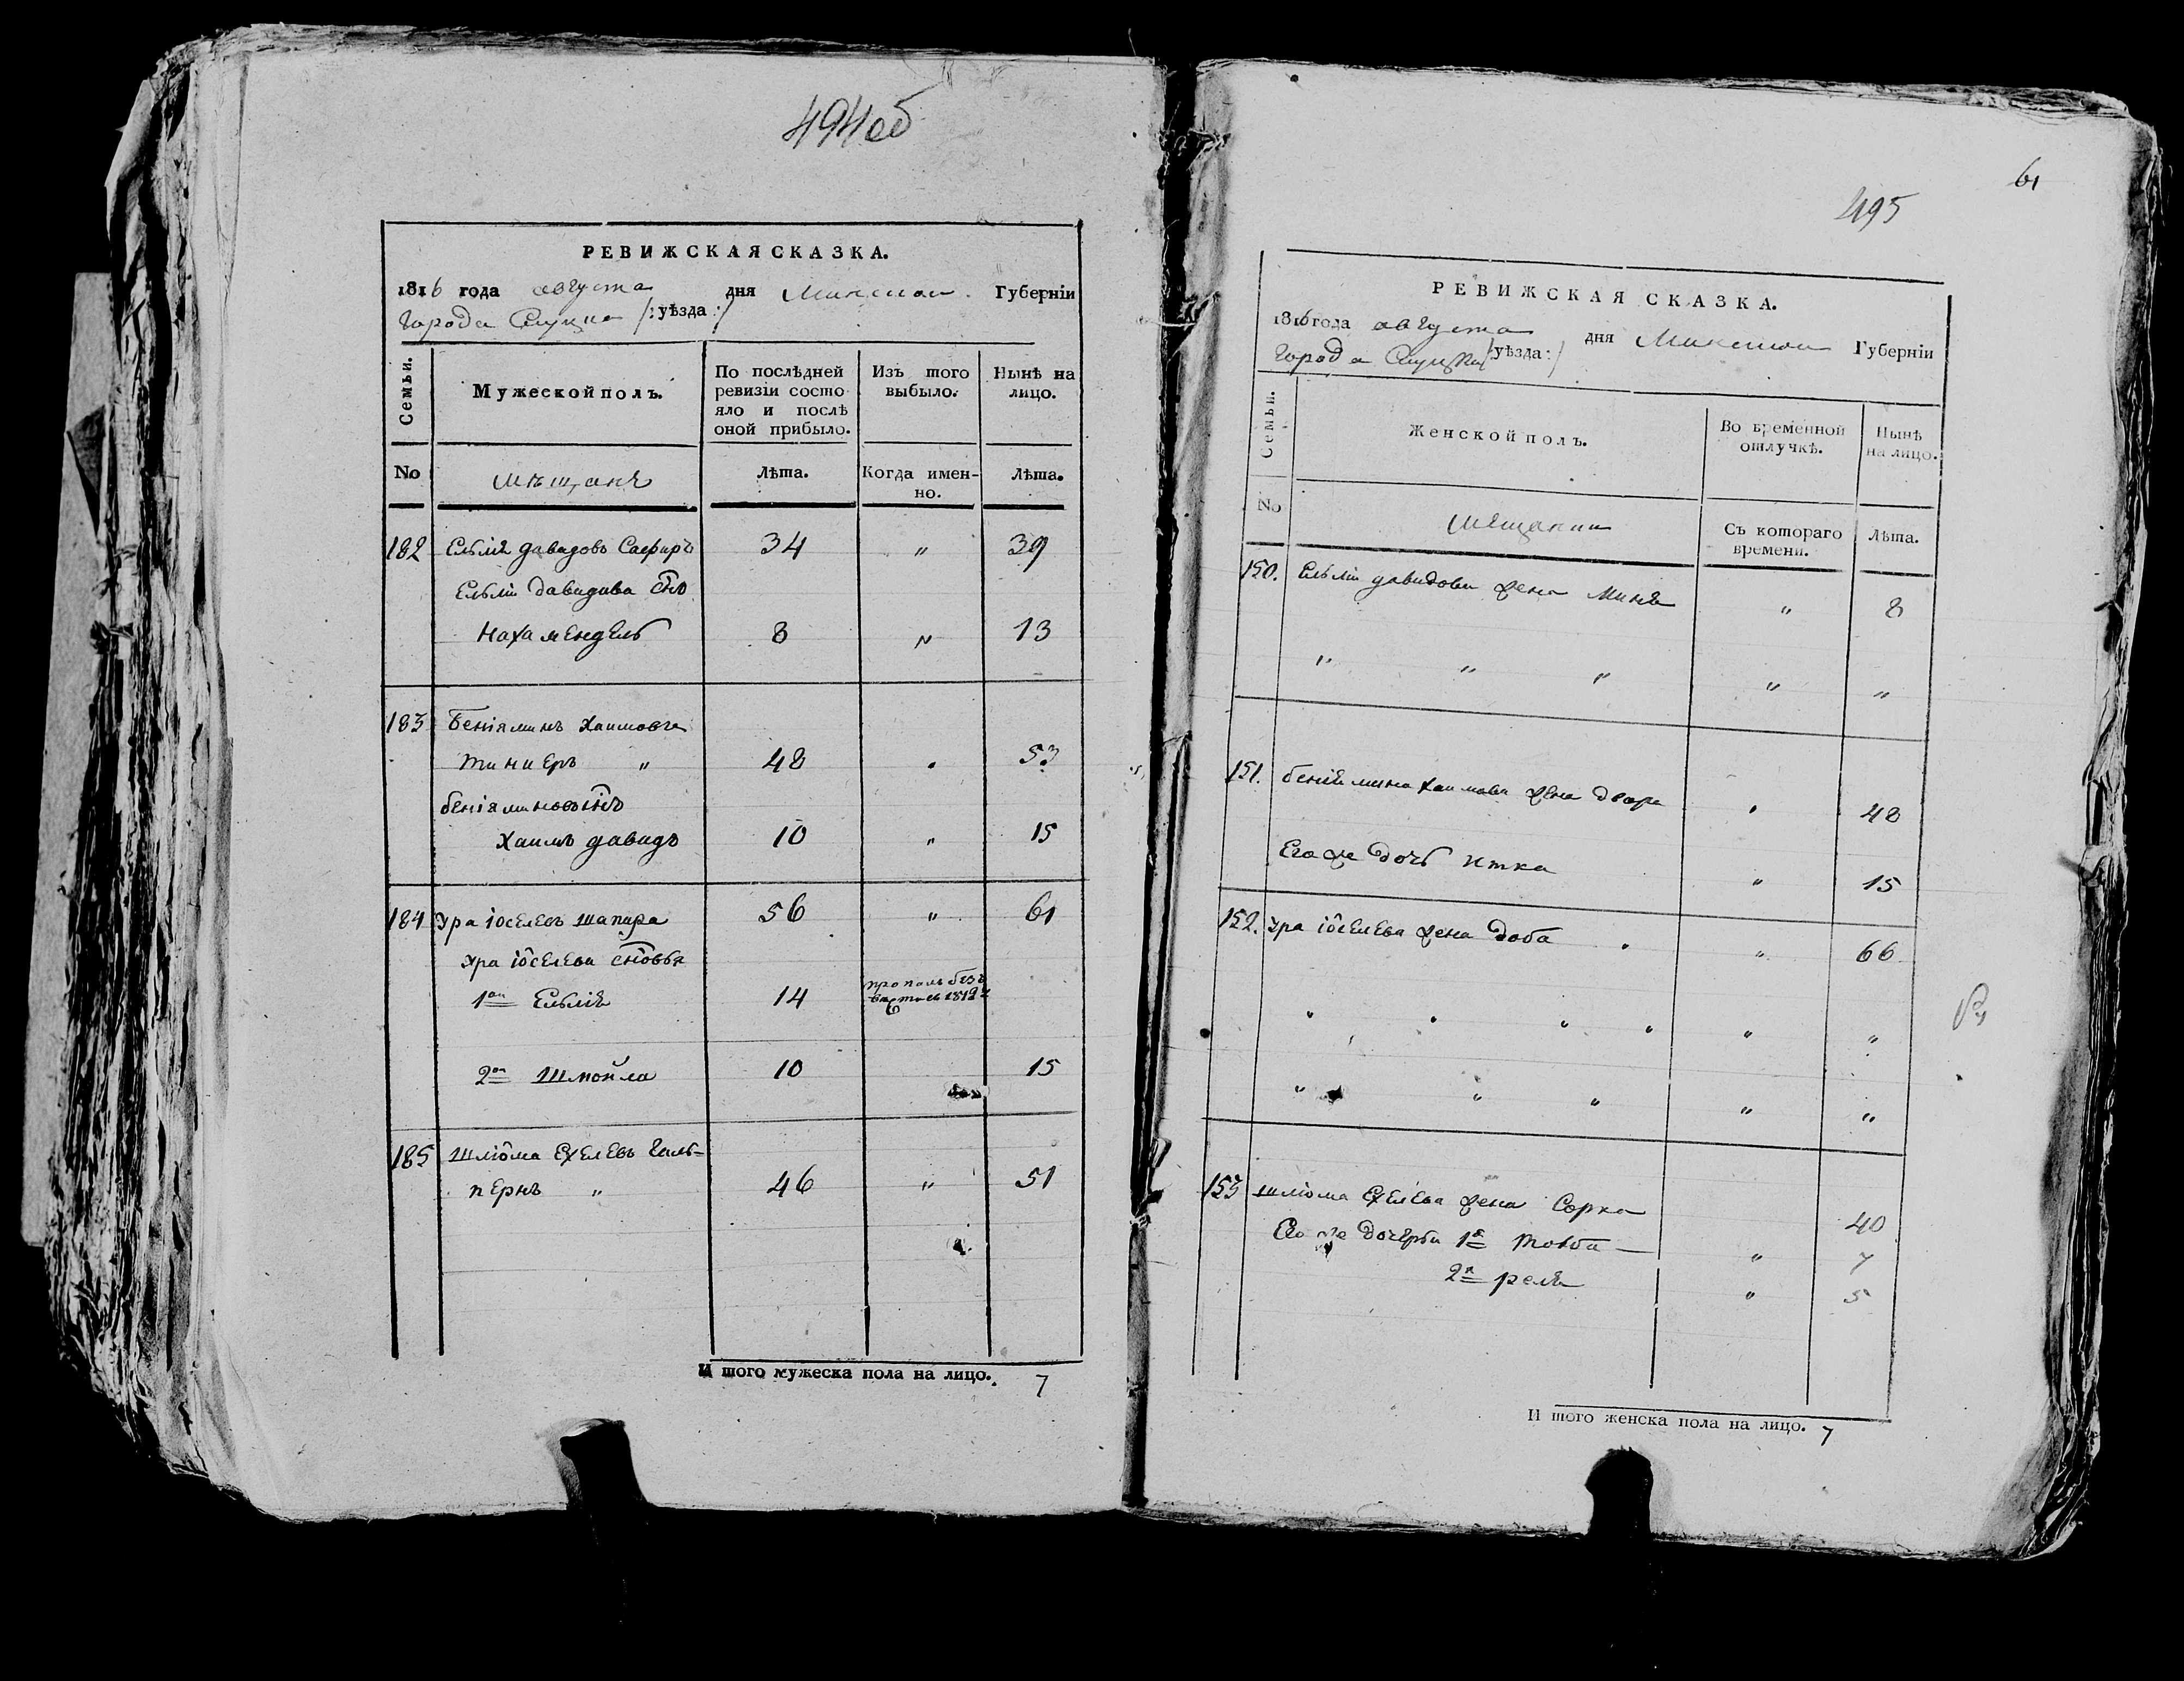 494об
РЕВИЖСКАЯ СКАЗКА.
1816 года августа дня Минской Губерніи
города Слуцка /:уѣзда:/
Семьи.
Мужеской полъ.
По послѣдней ревизіи состо-
яло и послѣ
оной прибыло.
Изъ того
выбыло.
Нынѣ на
лицо.
No
мѣщанъ
Лѣта.
Когда имен-
но.
Лѣта.
182 Ельлія давидовъ Сафиръ 34 " 39
Ельлія давидова снъ
Нахамендель 8 " 13
183 Беніяминъ Хаимовъ
Тиниеръ " 48 53
беніяминовъ снъ
Хаимъ давидъ 10 " 15
184 Ура іоселевъ шапира 56 " 61
Ура іоселева сновья
1ой Ельлія 14 пропалъ безъ
вести съ 1812
2ой Шмойла 10 15
185 Шліома Ехелевъ Галь-
пернъ " 46 " 51
И того мужеска пола на лицо. 7
61
495
РЕВИЖСКАЯ СКАЗКА.
1816 года августа дня Минской Губерніи
города Слуцка /:уѣзда:/
Семьи.
Женской полъ.
Во временной
отлучкѣ.
Нынѣ
на лицо.
No
мещанки
Съ котораго
времени.
Лѣта.
150. Ельлія давидова жена Миня " 8
" " " " "
151. беніямина Хаимова жена двора 48
Его же дочь итка " 15
152. Ура іоселева жена доба " 66
" " " " " "
" " " " "
153 шліома Ехелева жена Сорка 40
Его же дочери 1я товба " 7
2я реля " 5
И того женска пола на лицо. 7